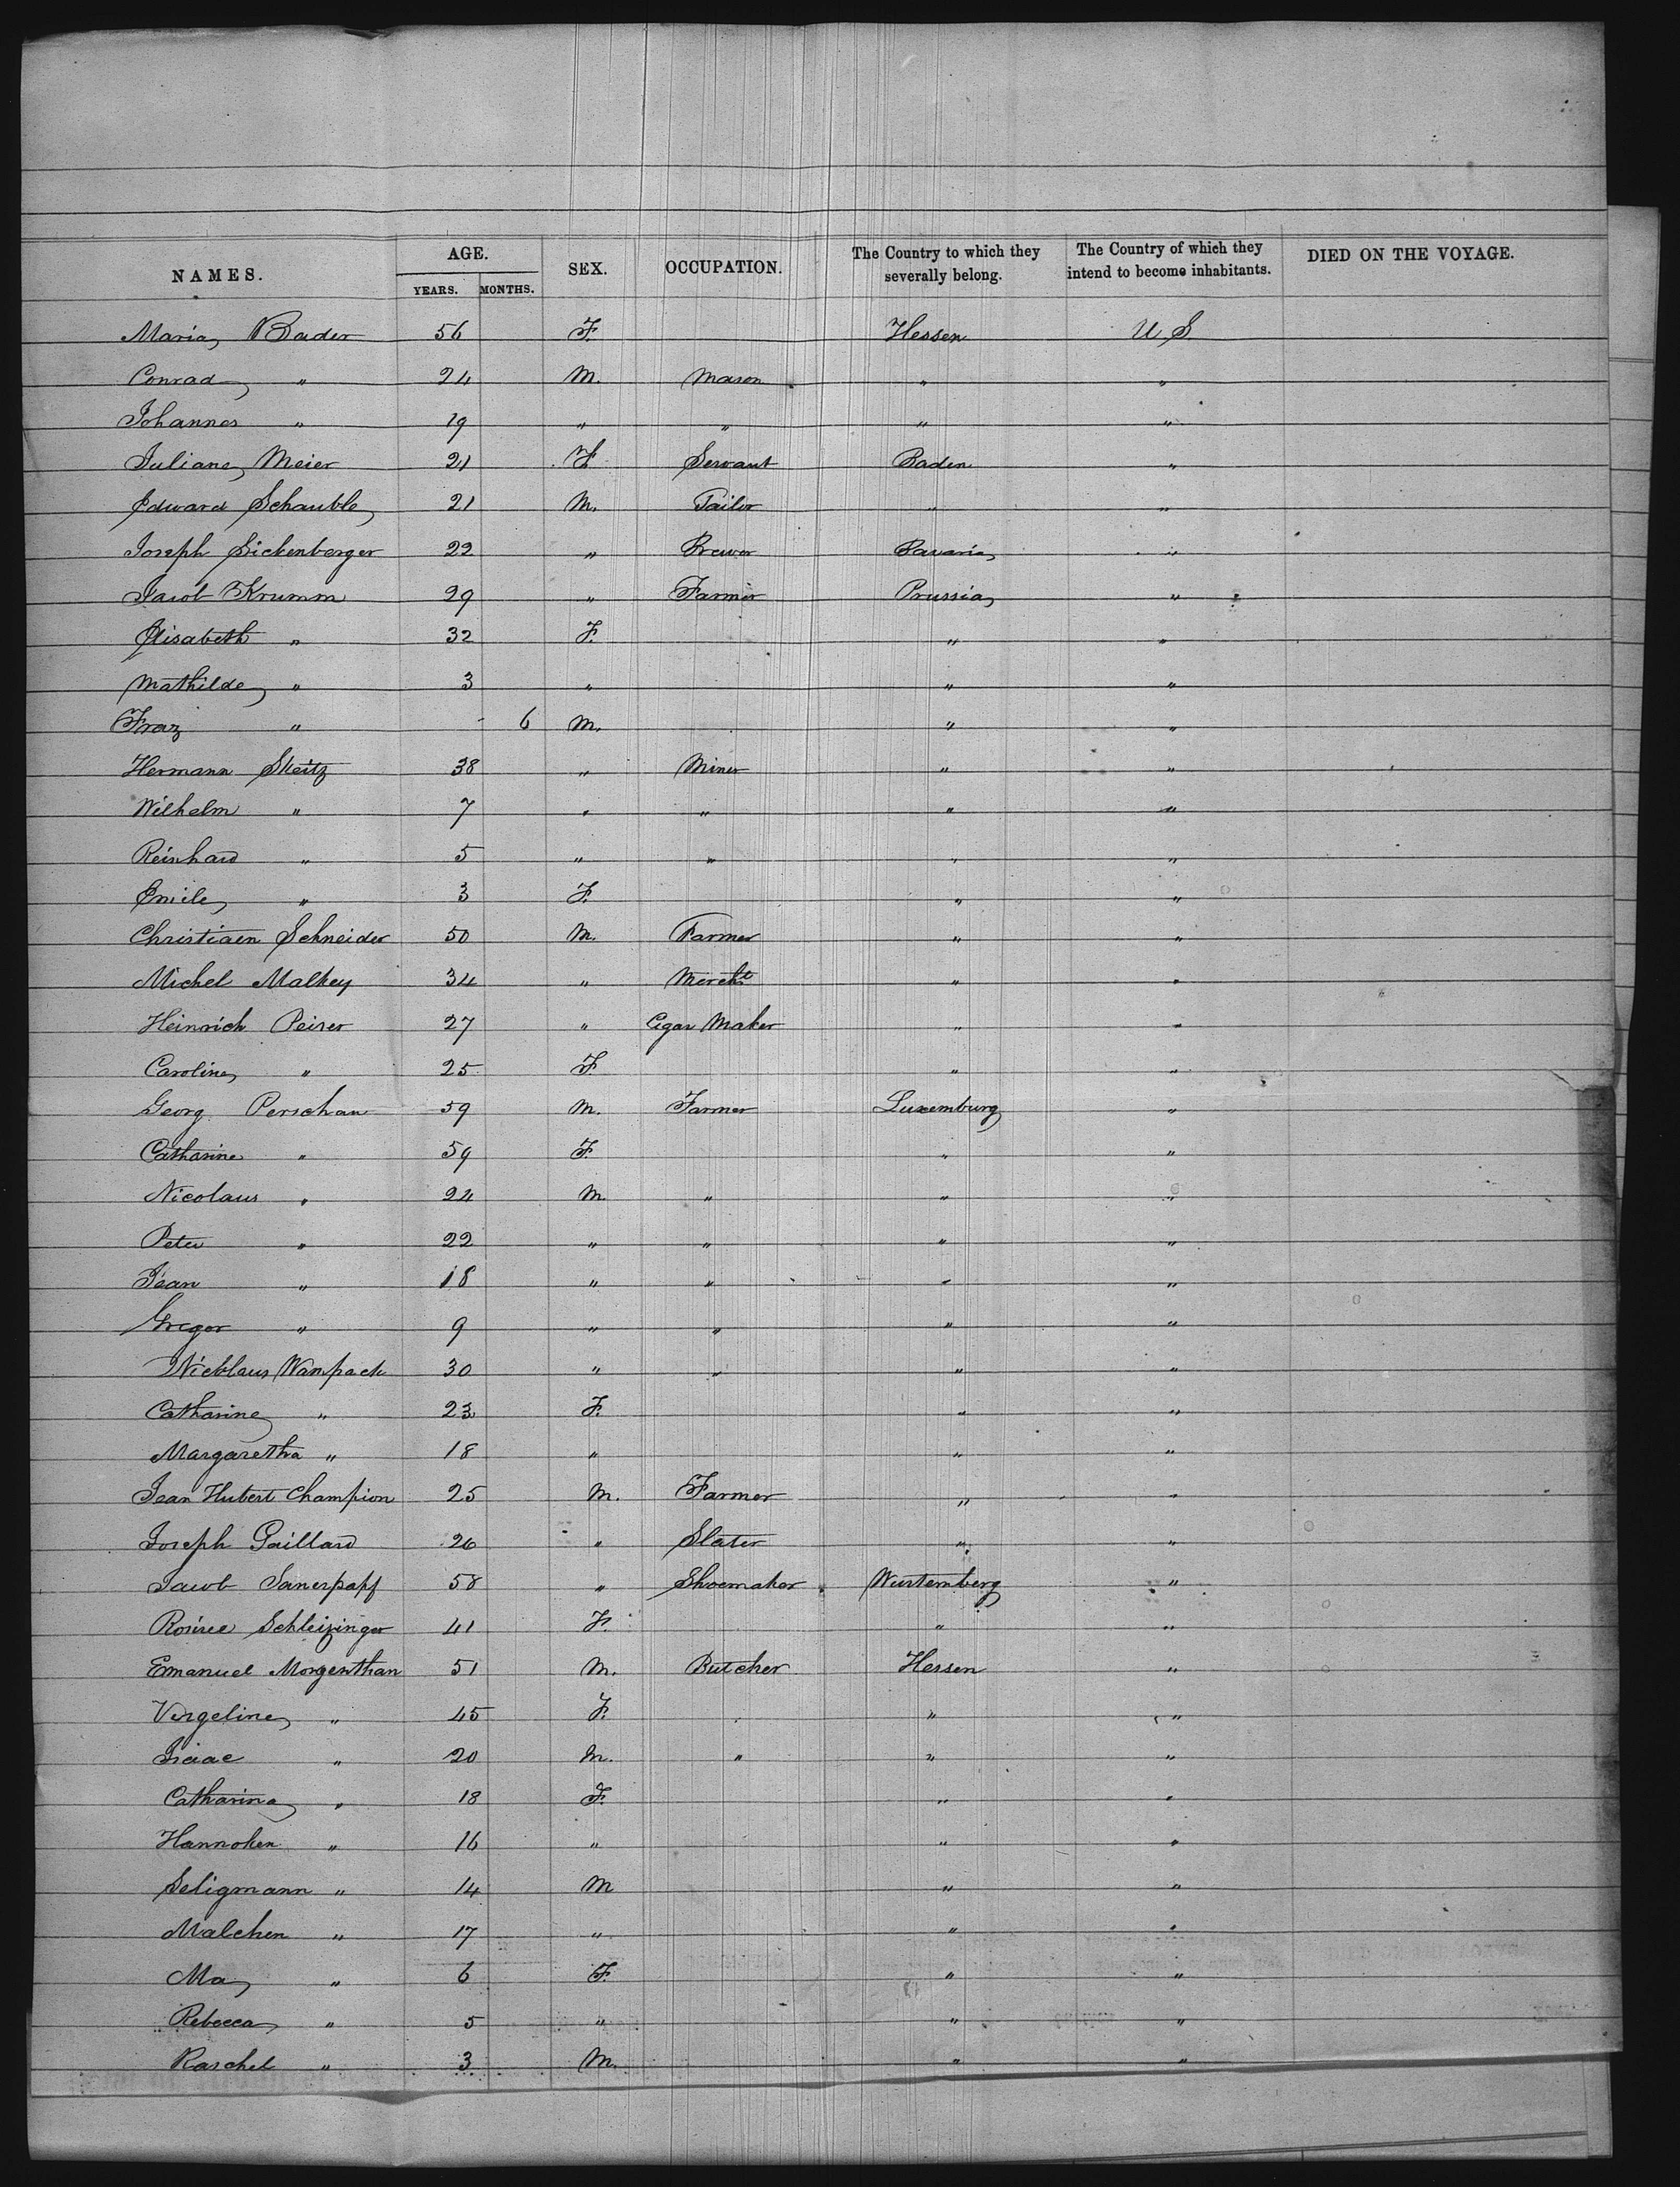 NAMES. AGE. SEX. OCCUPATION. The Country to which they severally belong. The Country of which they intend to become inhabitants. DIED ON THE VOYAGE.
YEARS. MONTHS.
Maria Bader 56 F. Hessen U S.
Conrad " 24 M. Mason " "
Johannes " 19 " " " "
Juliane Meier 21 F. Servant Baden "
Edward Schauble 21 M. Tailor " "
Joseph Sickenberger 22 " Brewer Bavaria "
Jacob Krumm 29 " Farmer Prussia "
Elisabeth " 32 F. " "
Mathilde " 3 " " "
Franz " 6 M. " "
Hermann 38 " Miner " "
Wilhelm " 7 " " " "
Reinhard " 5 " " " "
Emile " 3 F. " "
Christiaen Schneider 50 M. Farmer " "
Michel Malkey 34 " Mercht " "
Heinrich Peiser 27 " Cigar Maker " "
Caroline " 25 F. " "
Georg Perschan 59 M. Farmer Luxemburg "
Catharine " 59 F. " "
Nicolaus " 24 M. " " "
Peter " 22 " " " "
Jean " 18 " " " "
Gregor " 9 " " " "
Nicklaus Wampach 30 " " " "
Catharine " 23 F. " "
Margaretha " 18 " " "
Jean Hubert Champion 25 M. Farmer " "
Joseph Gaillard 26 " Slater " "
Jacob 58 " Shoemaker Wurtemberg "
Schleizinger 41 F. " "
Emanuel Morgenthau 51 M. Butcher Hessen "
Vergeline " 45 F. " "
Isaac " 20 M. " " "
Catharina " 18 F. " "
Hannchen " 16 " " "
Seligmann " 14 M " "
Malchen " 17 " " "
Ma " 6 F. " "
Rebecca " 5 " " "
Raschel " 3 M. " "